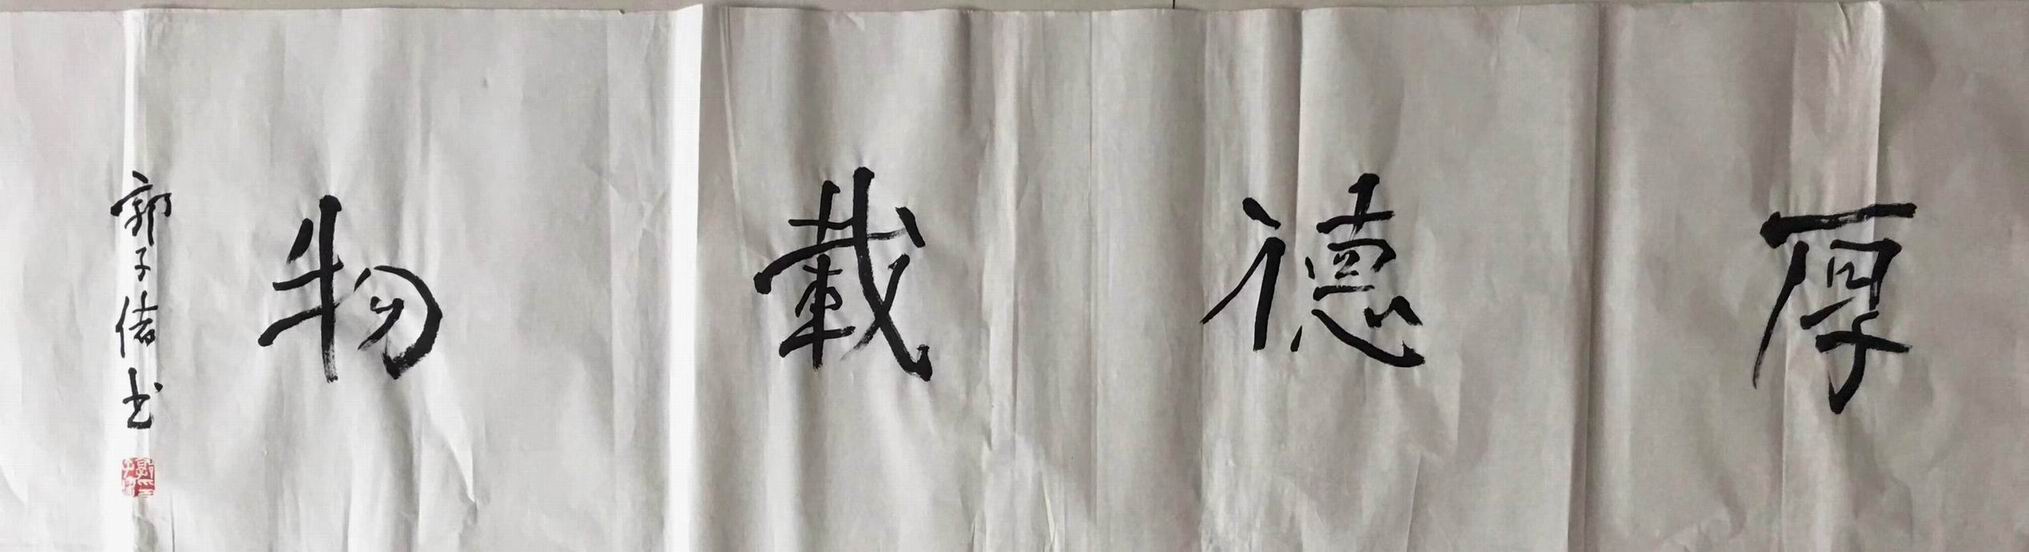 厚德載物
郭子储书